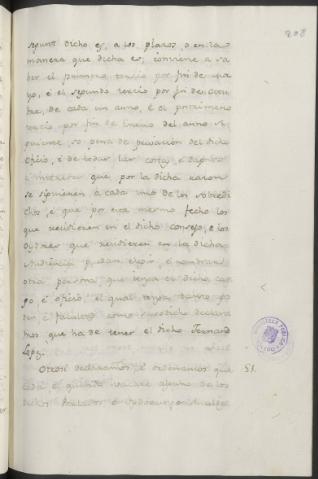 208
segund dicho es, a los plazos, o en la
manera que dicha es; conviene a sa
ber el primero tercio por fin de ma
yo, é el segundo tercio por fin de
de cada un anno, é el postrimero
tercio por fin de Enero del anno si
guiente, so pena de privacion del dicho
oficio, é de todas las costas, é dapnos
é interese que por la dicha razon
se siguieren a cada uno de los sobredi
chos, é que por ese mesmo fecho los
que residieren en el dicho consejo, é los
Oydores que residieren en la dicha
Audiencia puedan elegir, é nombrar
otra persona, que tenga el dicho car
go, é oficio, el qual tenga tanto po
der é facultad como susodicho declara
mos que ha de tener el dicho Fernand
Lopez.
Otrosi declaramos, é ordenamos que 51.
cada é quando vacare alguno de los
dichos Perlados, é